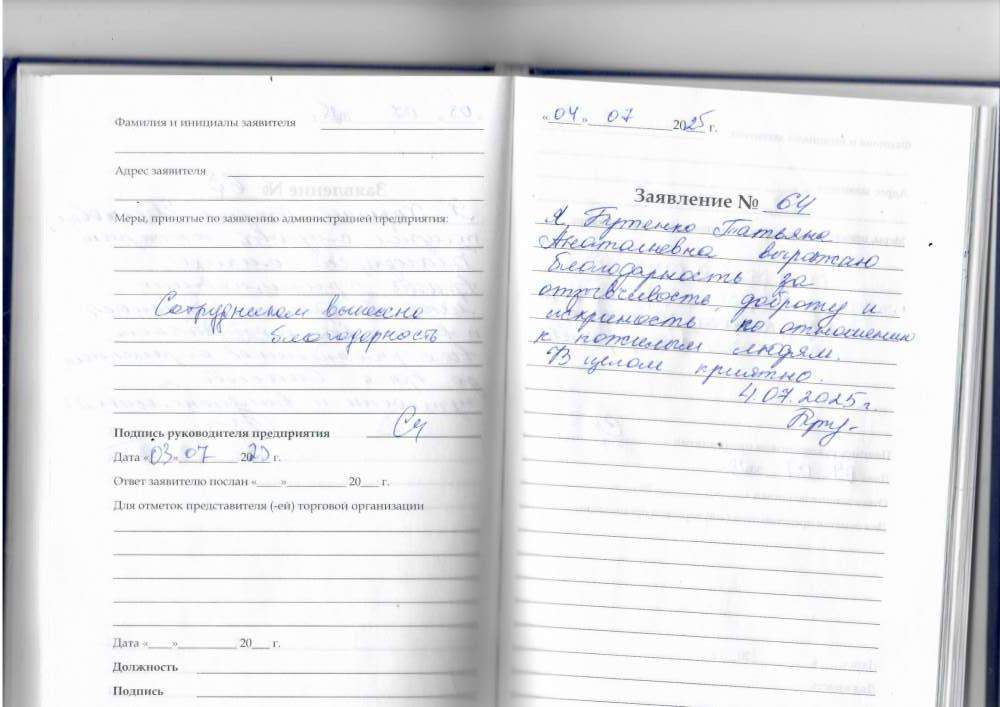 Фамилия и инициалы заявителя
Адрес заявителя
Меры, принятые по заявлению администрацией предприятия:
Сотрудникам вынесена
благодарность
Подпись руководителя предприятия
Дата «03» 07 2025 г.
Ответ заявителю послан «____»__________ 20___ г.
Для отметок представителя (-ей) торговой организации
Дата «____»__________ 20___ г.
Должность
Подпись
«04» 07 2025 г.
Заявление № 64
Я, Бутенко Татьяна
Анатольевна выражаю
благодарность за
отзывчивость, доброту и
искреность по отношению
к пожилым людям.
В целом приятно.
4.07.2025 г.